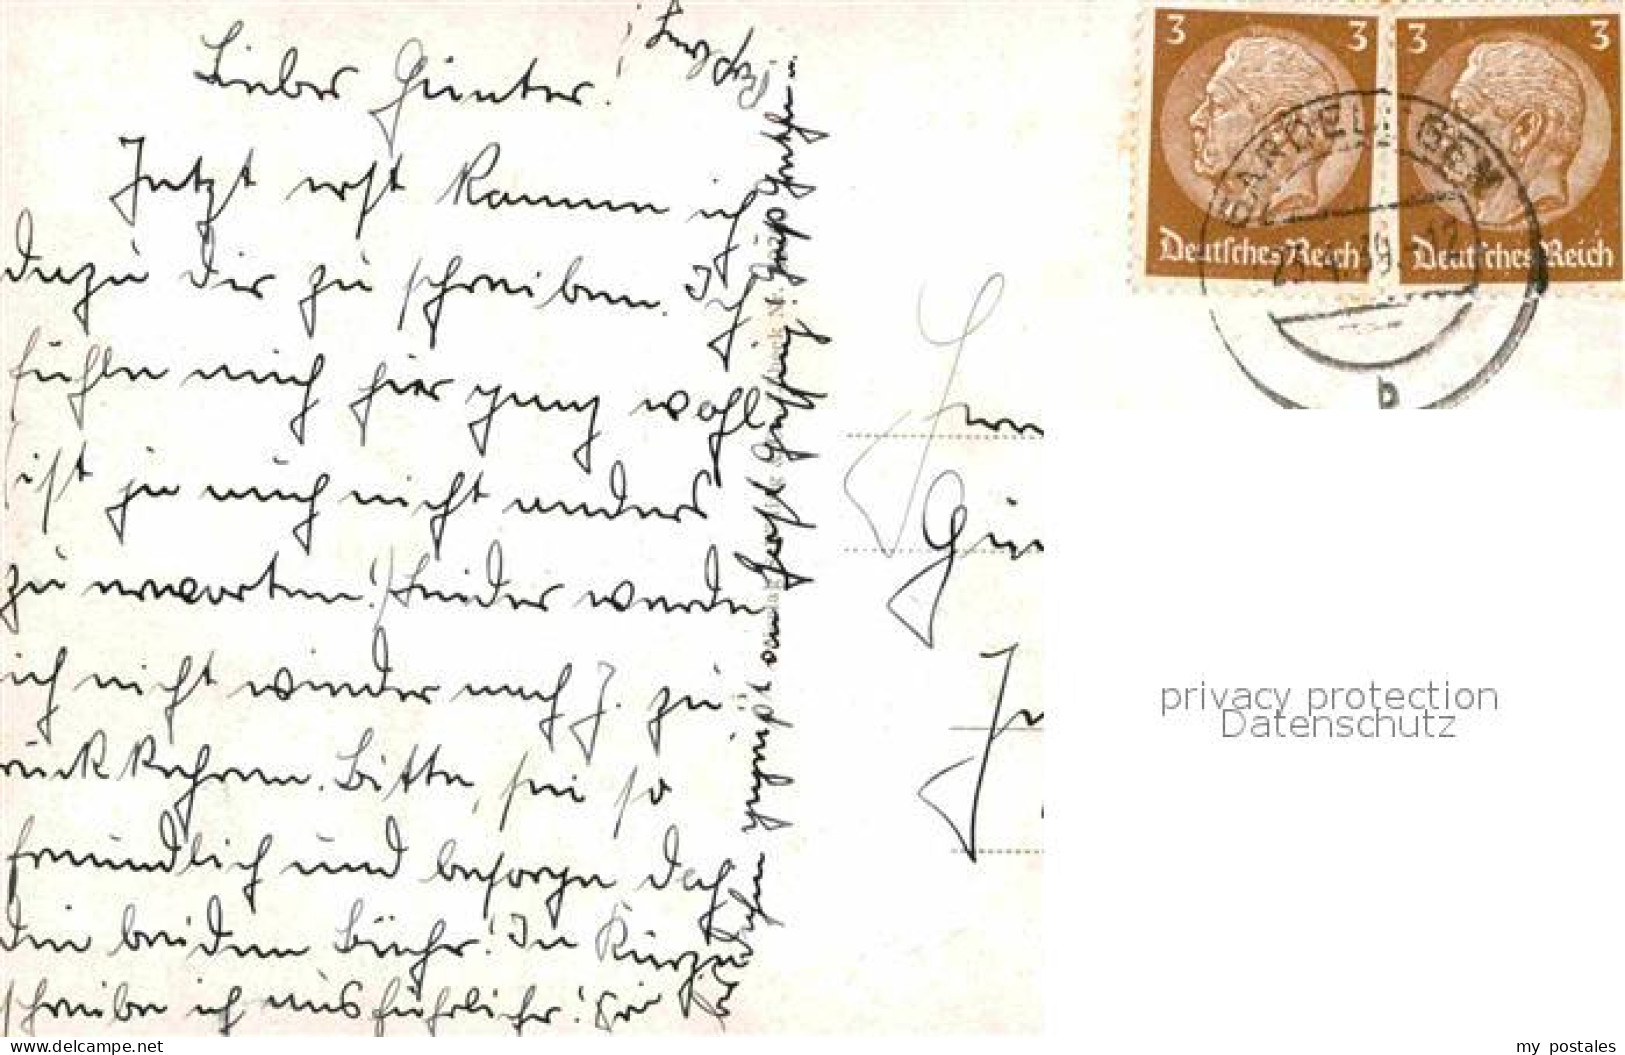 Lieber Günter!
Jetzt erst komme ich
dazu dir zu schreiben. Ich
fühle mich hier ganz wohl
ist ja auch nicht anders
zu erwarten! Leider werde
ich nicht wieder nach J. zu
rück kehren. Bitte, sei so
freundlich und besorge doch
die beiden Bücher! In Kürze
schreibe ich ausführlicher!
herzlich
Gü
3 3 3 3
Deutsches Reich Deutsches Reich
GARDELEGEN
39.-12
b
privacy protection
Datenschutz
www.delcampe.net
my_postales